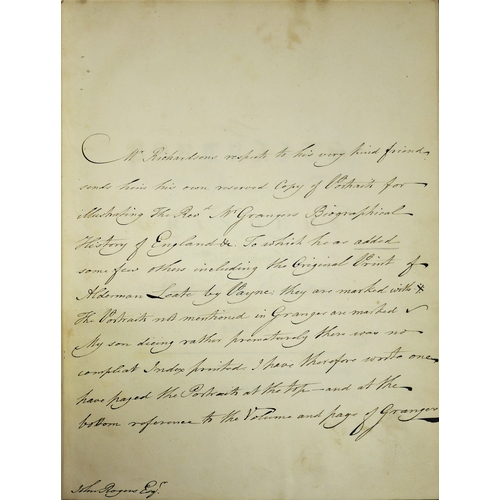 Mr Richardsons respects to his very kind friend,
sends him his own reserved Copy of Portraits for
illustrating The Revd. Mr Grangers Biographical
History of England &c. To which he as added
some few others including the Original Print of
Alderman Leate by Payne; they are marked with
The Portraits not mentioned in Granger are marked
My son dieing rather prematurely there was no
compleat Index printed. I have therefore wrote one
have paged the Portraits at the top – and at the
bottom reference to the Volume and page of Granger
John Rogers Esqr.